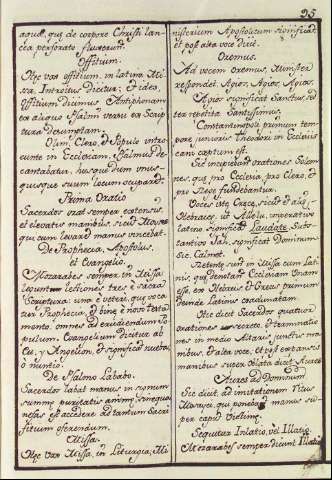 25
aquæ, quæ de corpore Christi lan
cea perforato fluxerunt.
Offitium.
Hæc vox offitium, in latina Mi
sa, Introitus dicitur; et ideo,
offitium dicimus, Antiphonam
ea aliquo Psalmi versu ex Scrip
tura desumptam.
Olim Clero, et Populo intro
eunte in Ecclesiam, Psalmus de
cantabatur, husque dum unus
quisque suum locum ocuparet.
Prima Oratio
Sacerdos orat semper extensis,
et elevatis manibus, sicut Moises
qui cum levaret manus vincebat.
De Prophecia, Apostolus,
et Evangelio.
Mozarabes semper in Missa
legunt lectiones tres è sacra
Scriptura: una è veteri, quæ voca
tur Prophecia, et binæ è novo testa
mento: omnes ad erudiendum Po
pulum. Evangelium dicitur ab
Eu, et Angelion, et significat nueva,
ò nuntio.
De Psalmo Lababo.
Sacerdos labat manus in signum
summæ puritatis animæ, sine qua
nefas est accedere ad tantum Sacri
fitium oferendum.
Missa.
Hæc vox Missa, in Liturgia, Mi
nisterium Apostolicum significat,
et postea voce dicit
Oremus.
Ad vocem oremus, Minister
respondet Agios, Agios, Agios,
Agios significat Sanctus, sed
ter repetita Santissimus.
Constantinopoli primum tem
pore junioris Theodosii in Ecclesiis
cani cæptum est.
Sic incipiebant orationes Solem
nes, quæ pro Ecclesia, pro Clero, et
pro Rege fundebantur.
Voces istæ Græcæ, sicut et aliæ
Hebraicæ, ut Allelu, imperativo
latino significat Laudate. Subs
tantivo Jah, significat Dominum
Sic Calmet.
Retinet sunt in Missa cum Lati
nis, quæ denotant Ecclesiam Unam
esse, ex Hebreis et Græcis primum
Deinde Latinis coadunatam.
Hic dicit Sacerdos quatuor
orationes secreto, et terminat
nes in medio Altaris junctis ma
nibus, et alta voce, et post expansis
manibus super Oblata dicit Aures
Aures ad Dominum
Sic dicit, ad imitationem Ritus
Mosayci, qui ponebat manus su
per caput Victimæ.
Sequitur Inlatio, vel Illatio.
Mozarabes semper dicunt Illatio